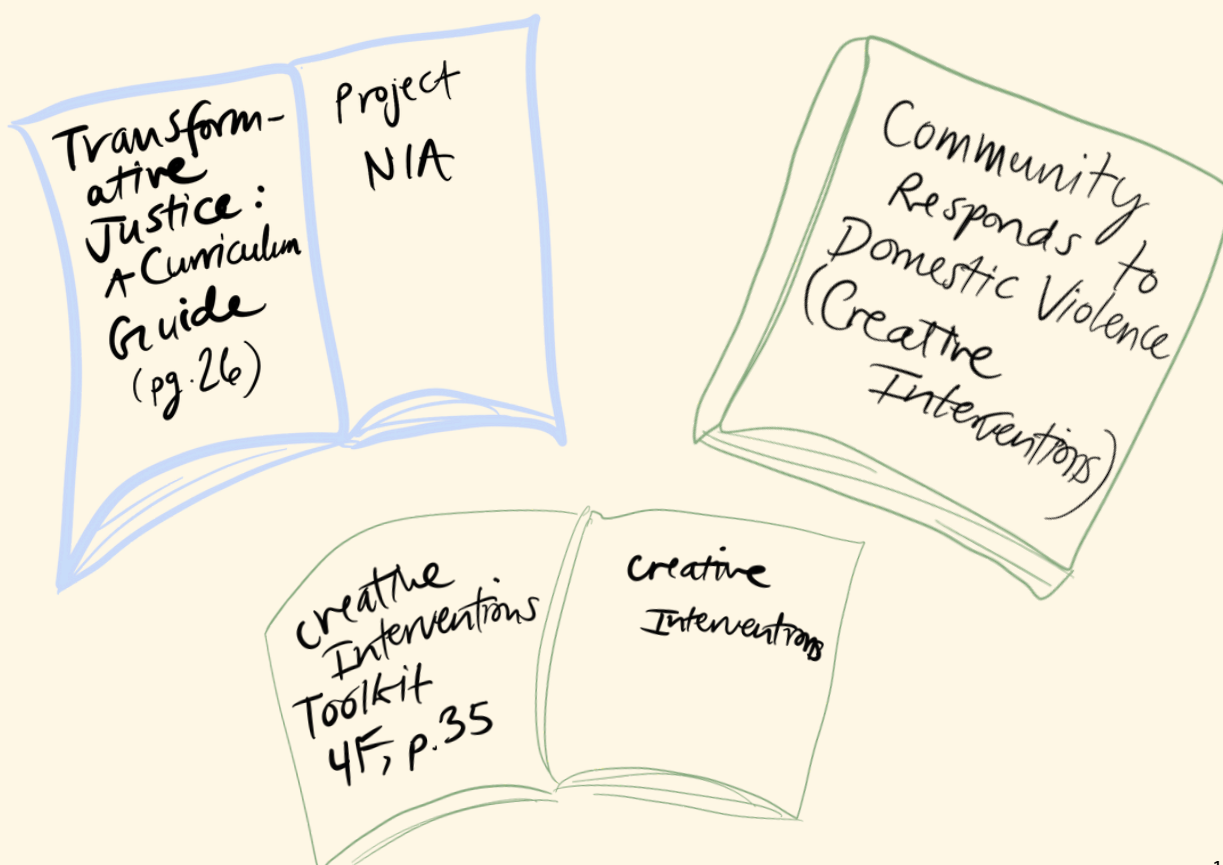 Transform-
ative
Justice:
A Curriculum
Guide
(pg.26)
Project
NIA
Community
Responds to
Domestic Violence
(Creative
Interventions)
Creative
Interventions
Toolkit
4F, p.35
Creative
Interventions